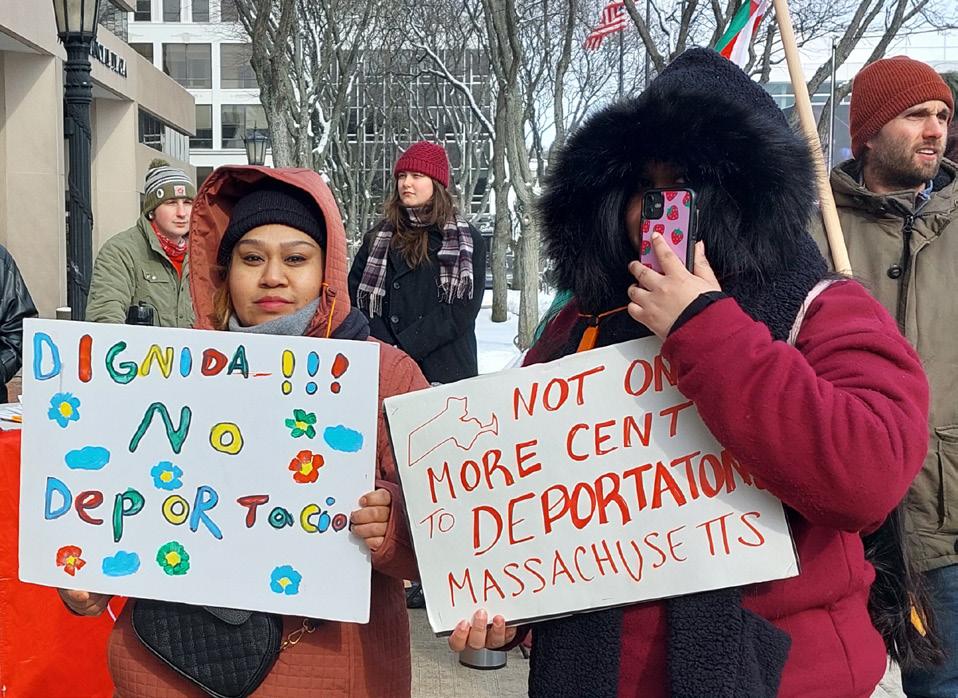 DIGNIDA_!!!
No
DepoRTacio
NOT ON
MORE CENT
TO DEPORTATON
MASSACHUSETTS